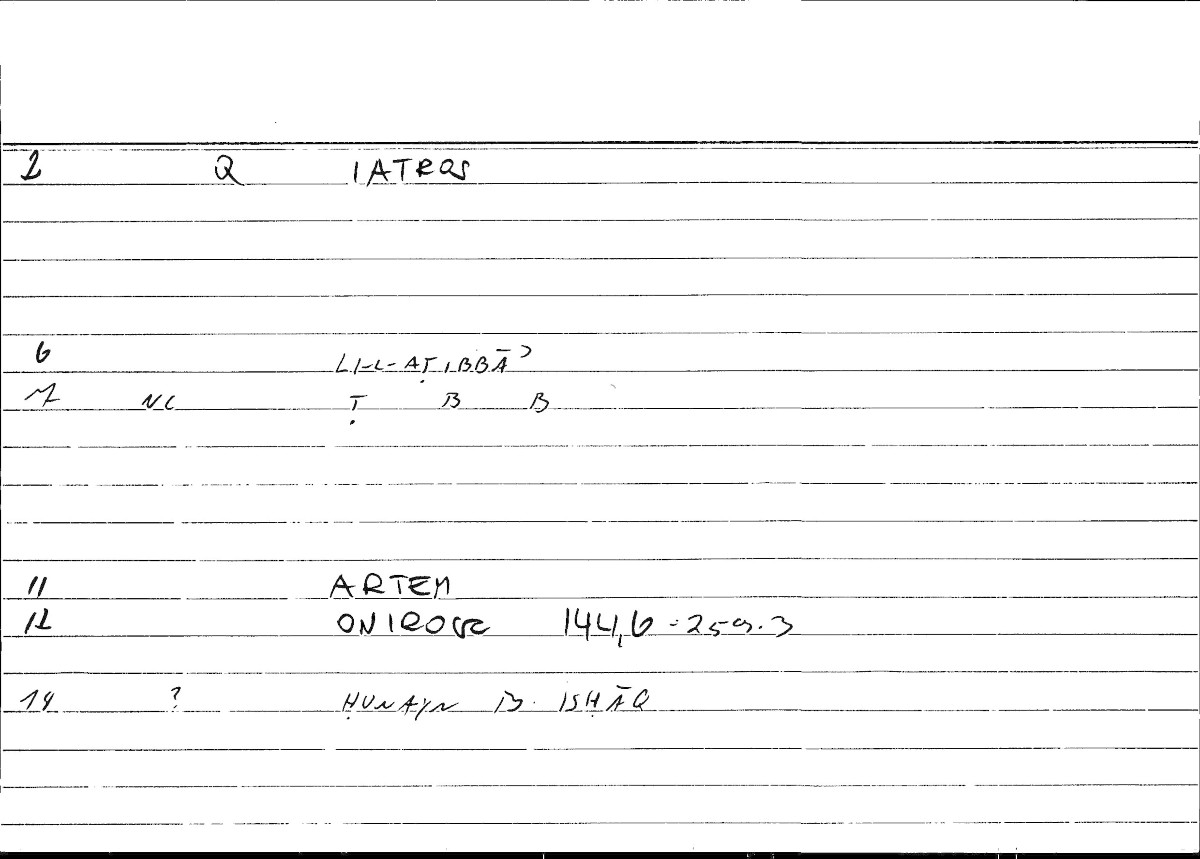 2 Q IATROS
6 LI-L-AṬIBBĀʾ
7 NC Ṭ B B
11 ARTEM
12 ONIROCR 144,6 = 259.3
14 ? ḤUNAYN B. ISḤĀQ